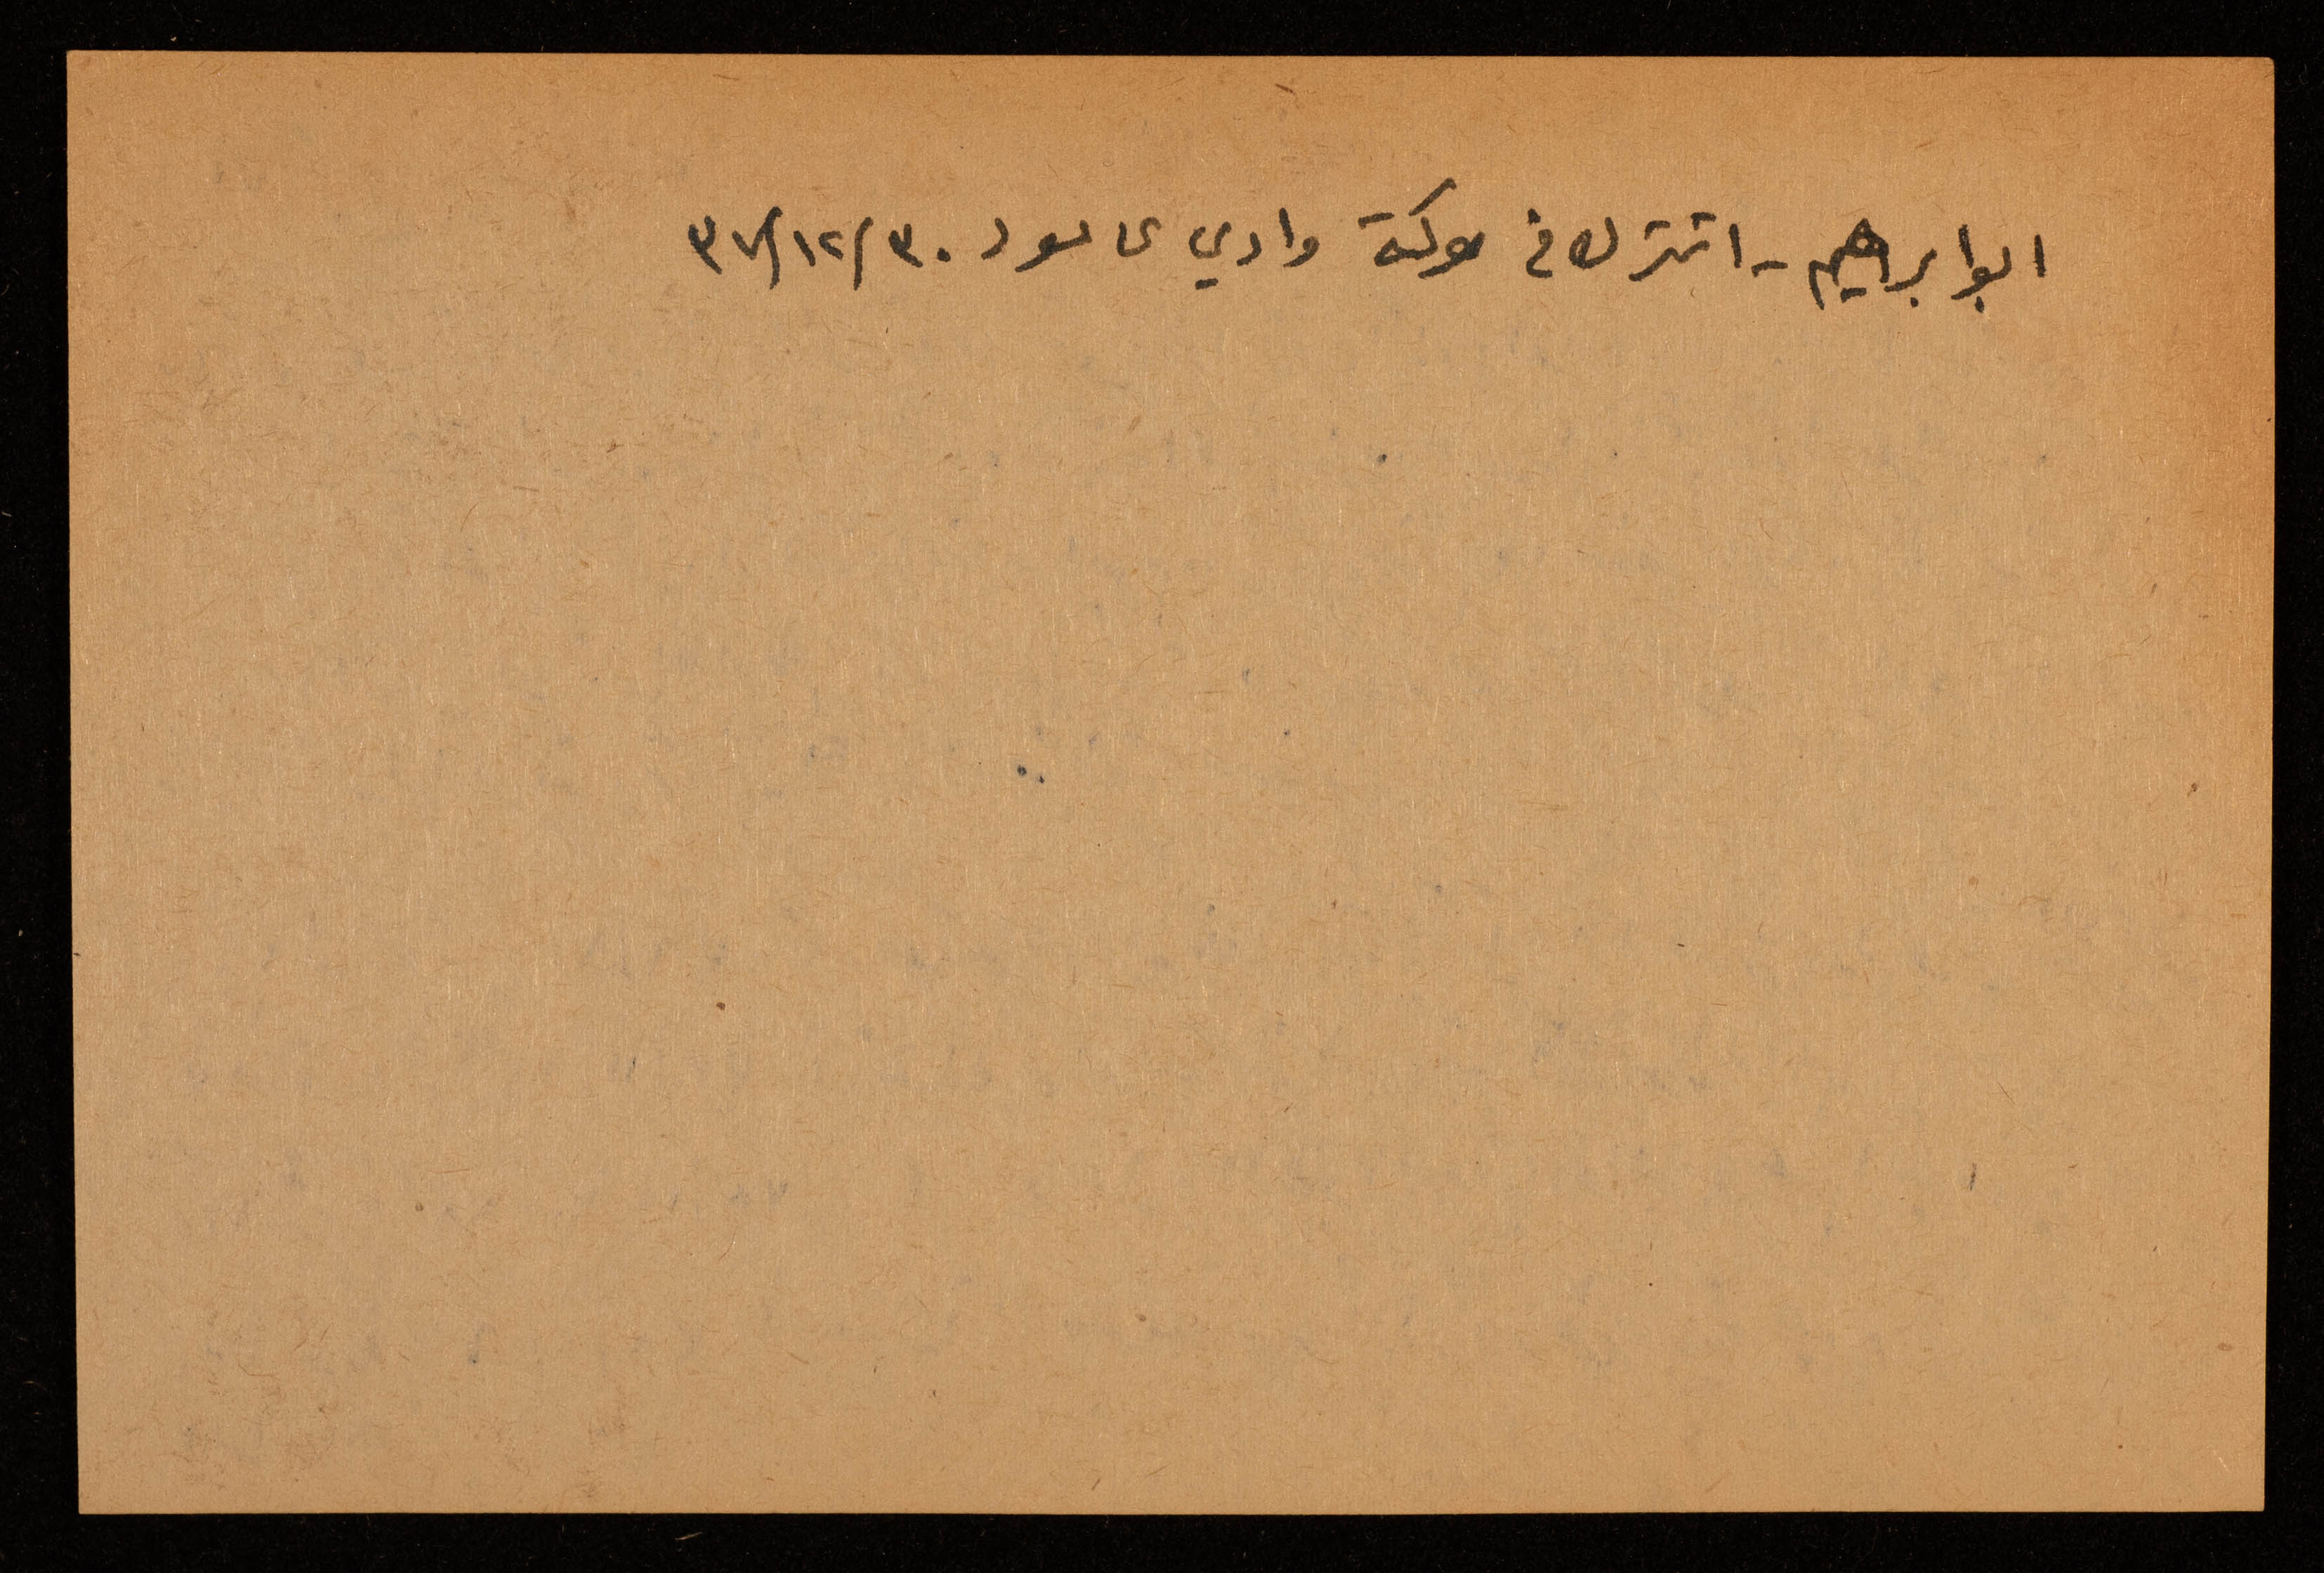 ابو ابراهيم - اشترك في معركة وادي عامود ٣٧/١٢/٣٠